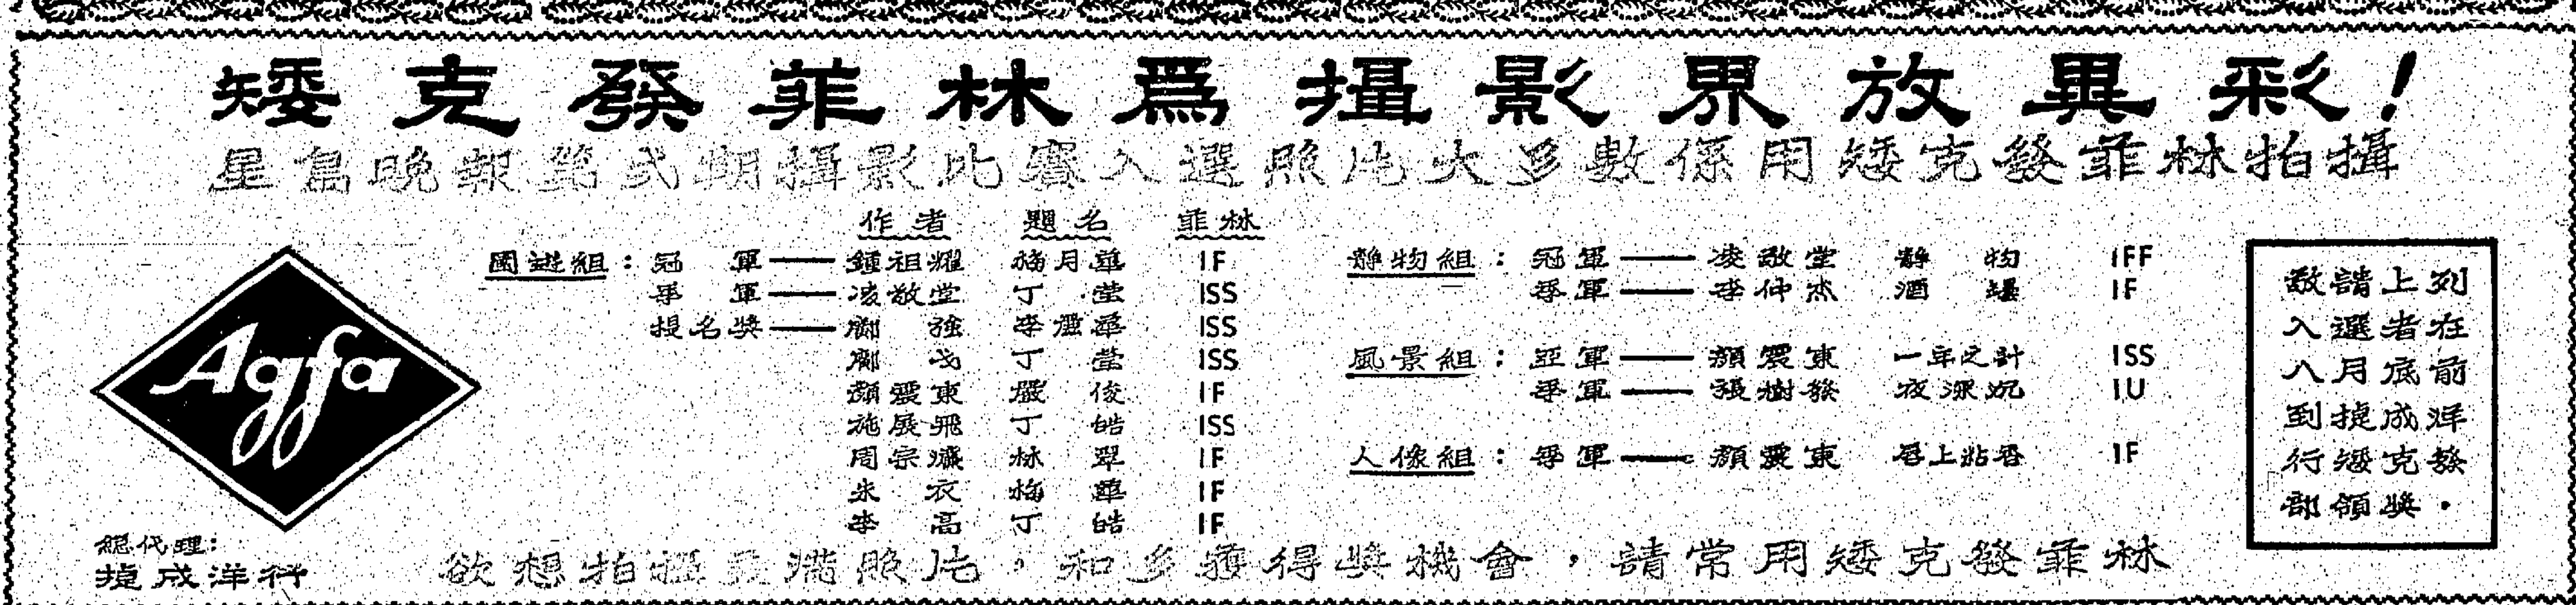 矮克發菲林爲攝影界放異彩!
星島晚報第弍期攝影比賽入選照片大多數係用矮克發菲林拍攝
作者 題名 菲林
冠軍——鍾祖耀 梅月華 IF
季軍——凌敬堂 丁瑩 ISS
提名獎——鄺強 李麗華 ISS
鄺戈 丁瑩 ISS
顏震東 嚴俊 IF
施展飛 丁皓 ISS
周宗 林翠 IF
朱衣 梅華 IF
李高 丁皓 IF
靜物組:冠軍——凌敬堂 靜物 IFF
季軍——李仲杰 酒 IF
風景組:亞軍——顏震東 一年之計 ISS
季軍——張樹發 夜深沉 IU
人像組:季軍——顏震東 唇上點香 IF
敬請上列
入選者在
八月底前
到捷成洋
行矮克發
部領獎.
Agfa
總代理:
捷成洋行
欲想拍攝美滿照片,和多獲得獎機會,請常用矮克發菲林